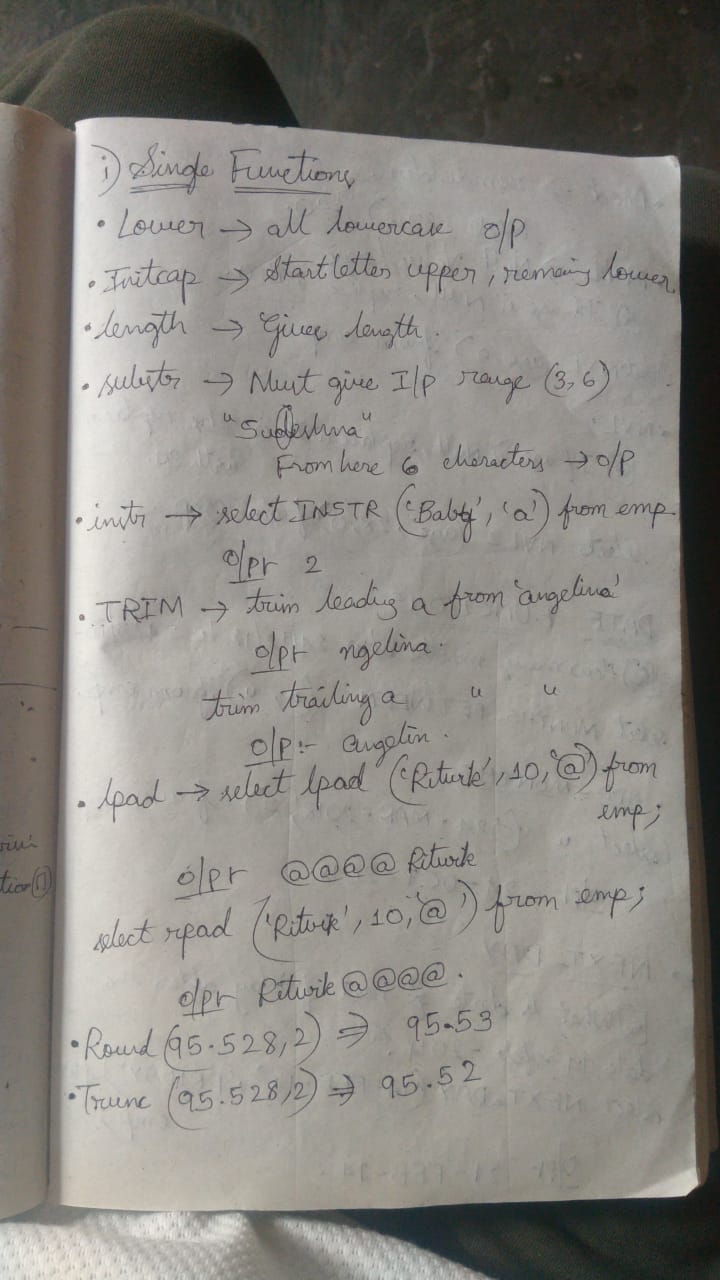 i) Single Functions
• Lower → all lowercase o/p
• Initcap → Start letter upper, remaing lower
• length → Gives length.
• substr → Must give I/p range (3,6)
"Sudeshna"
From here 6 characters → o/p
• instr → select INSTR ('Baby', 'a') from emp
o/p:- 2
• TRIM → trim leading a from 'angelina'
o/p:- ngelina.
trim trailing a " "
o/p:- angelin.
• lpad → select lpad ('Ritwik', 10, '@') from
emp;
o/p:- @@@@ Ritwik
select rpad ('Ritwik', 10, '@') from emp;
o/p:- Ritwik @@@@.
• Round (95.528, 2) ⇒ 95.53
• Trunc (95.528, 2) ⇒ 95.52